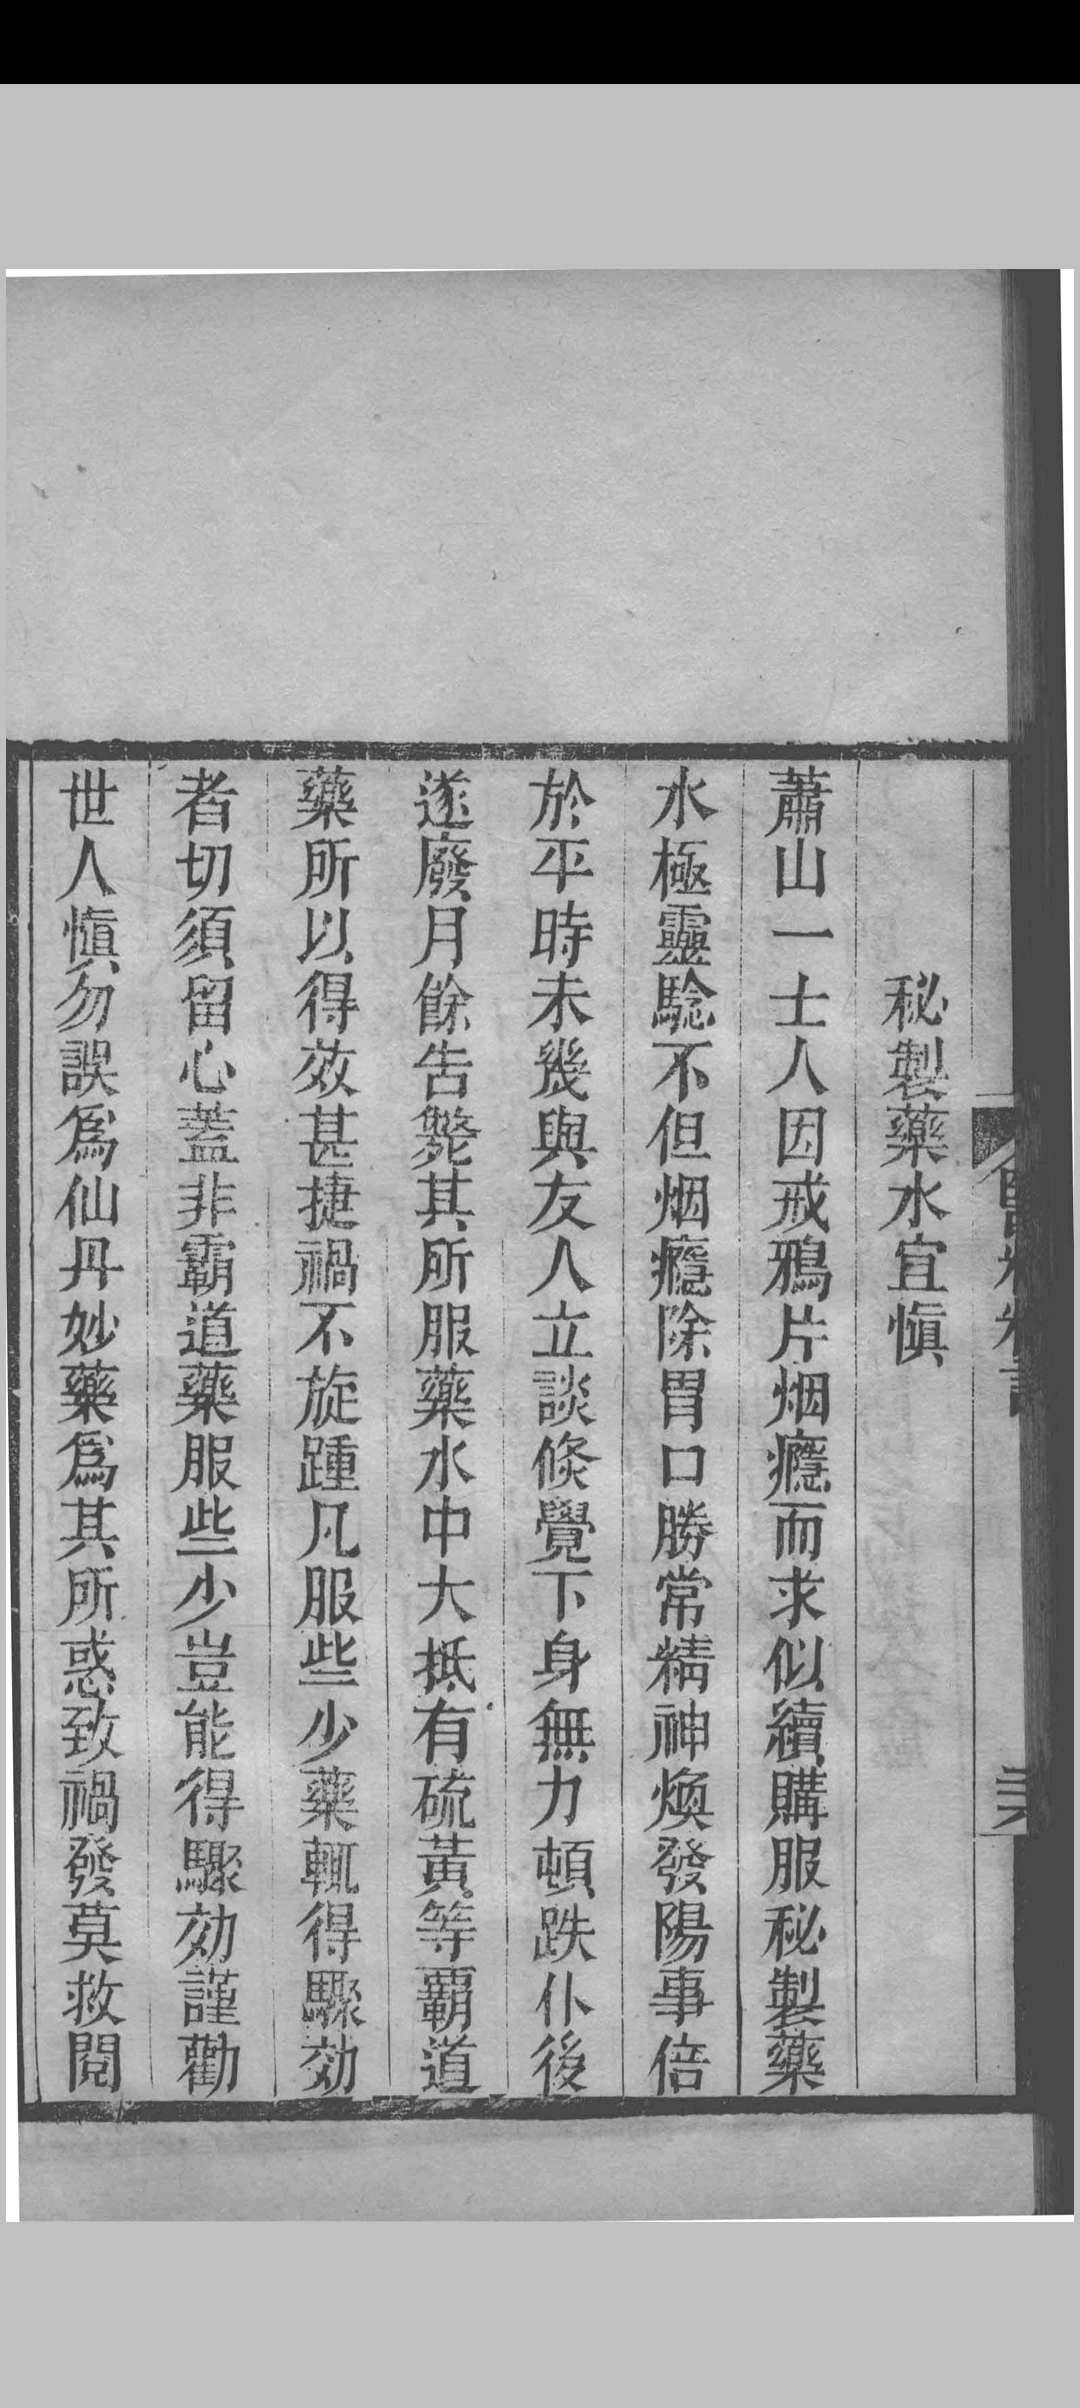 秘製藥水宜愼
蕭山一士人因戒鴉片烟癮而求似續購服秘製藥
水極靈騐不但烟癮除胃口勝常精神煥發陽事倍
於平時未幾與友人立談倐覺下身無力頓跌仆後
遂廢月餘告斃其所服藥水中大抵有硫黃等覇道
藥所以得效甚捷禍不旋踵凡服些少藥輒得驟効
者切須留心蓋非霸道藥服些少豈能得驟効謹勸
世人愼勿誤爲仙丹妙藥爲其所惑致禍發莫救閱